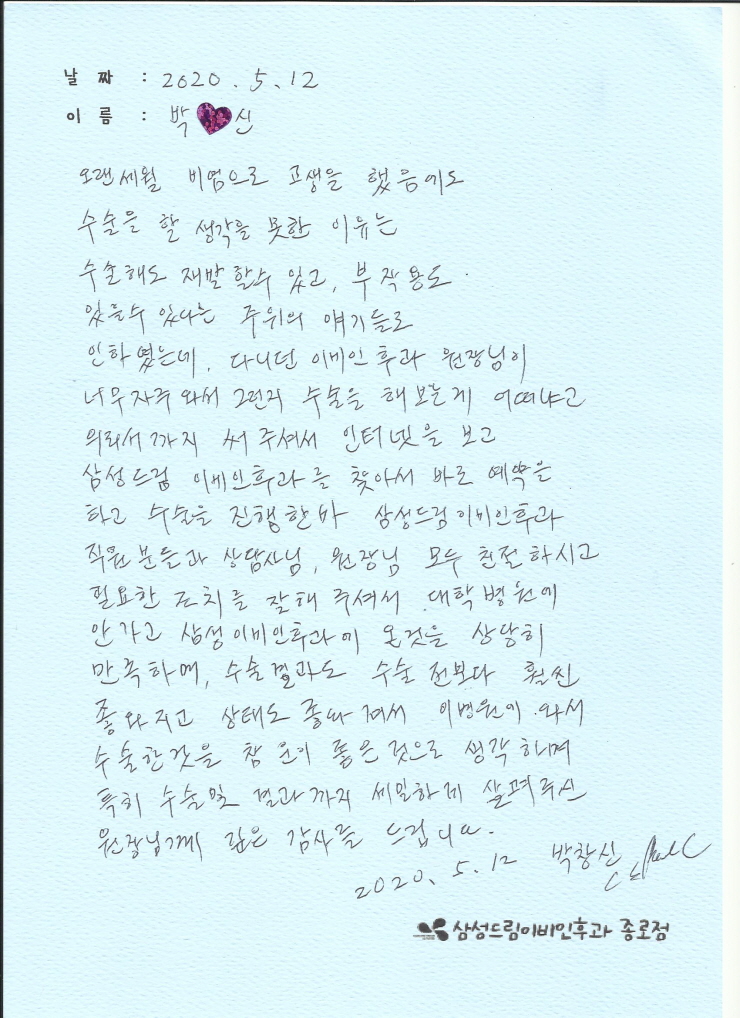 날 짜 : 2020.5.12
이 름 : 박 신
오랜세월 비염으로 고생을 했음에도
수술을 할 생각을 못한 이유는
수술해도 재발 할수 있고, 부작용도
있을수 있다는 주위의 얘기들로
인하였는데, 다니던 이비인후과 원장님이
너무자주 와서 그런지 수술을 해보는게 어떠냐고
의뢰서까지 써 주셔서 인터넷을 보고
삼성드림 이비인후과를 찾아서 바로 예약을
하고 수술을 진행한바 삼성드림이비인후과
직원분들과 상담사님, 원장님 모두 친절하시고
필요한 조치를 잘해 주셔서 대학병원에
안가고 삼성이비인후과에 온것을 상당히
만족하며, 수술결과도 수술 전보다 훨씬
좋아지고 상태도 좋아져서 이병원에 와서
수술한것을 참 운이 좋은 것으로 생각하며
특히 수술및 결과까지 세밀하게 살펴주신
원장님께 깊은 감사를 드립니다.
2020. 5. 12 박창신
삼성드림이비인후과 종로점